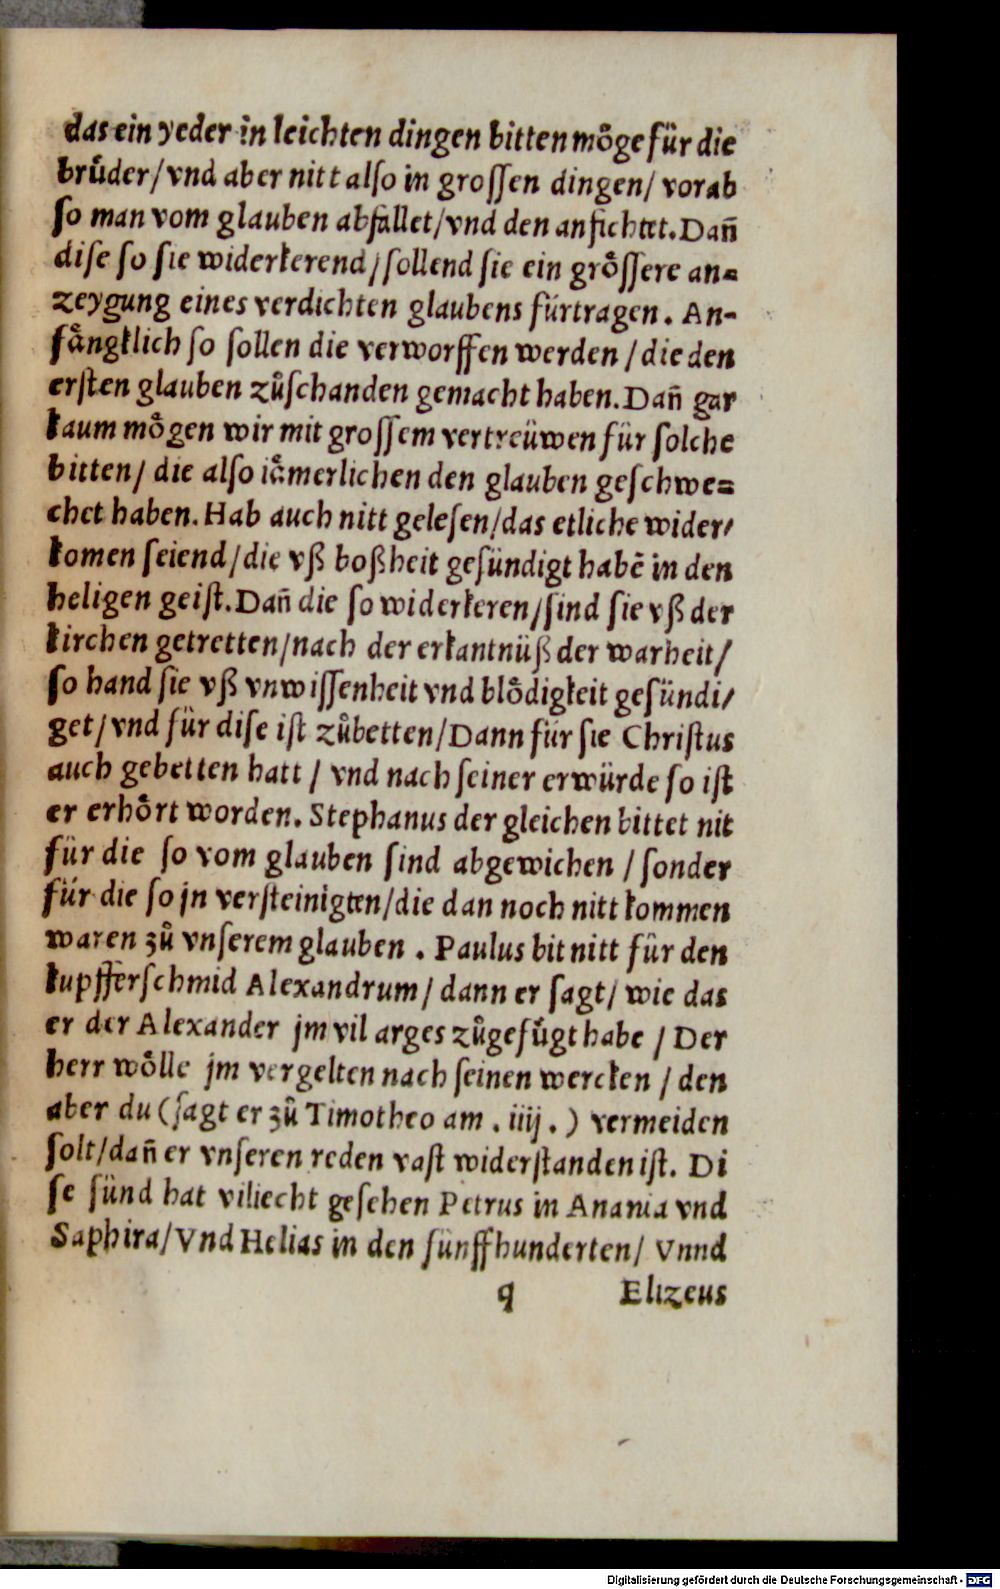 das ein yeder in leichten dingen bitten moͤge für die
bruͤder/ vnd aber nitt also in grossen dingen/ vorab
so man vom glauben abfallet/ vnd den anfichtet. Dañ
dise so sie widerkerend/ sollend sie ein groͤssere an⸗
zeygung eines verdichten glaubens fürtragen. An-
faͤngklich so sollen die verworffen werden / die den
ersten glauben zuͦschanden gemacht haben. Dañ gar
kaum moͤgen wir mit grossem vertreüwen für solche
bitten/ die also iaͤmerlichen den glauben geschwe⸗
chet haben. Hab auch nitt gelesen/ das etliche wider/
komen seiend/ die vß boßheit gesündigt habē in den
heligen geist. Dañ die so widerkeren/ sind sie vß der
kirchen getretten/ nach der erkantnüß der warheit/
so hand sie vß vnwissenheit vnd bloͤdigkeit gesündi/
get/ vnd für dise ist zuͦbetten/ Dann für sie Christus
auch gebetten hatt / vnd nach seiner erwürde so ist
er erhoͤrt worden. Stephanus der gleichen bittet nit
für die so vom glauben sind abgewichen / sonder
für die so jn versteinigten/ die dan noch nitt kommen
waren zuͦ vnserem glauben . Paulus bit nitt für den
kupfferschmid Alexandrum / dann er sagt/ wie das
er der Alexander jm vil arges zuͦgefuͤgt habe / Der
herr woͤlle jm vergelten nach seinen wercken / den
aber du (sagt er zuͦ Timotheo am . iiij . ) vermeiden
solt/ dañ er vnseren reden vast widerstanden ist. Di
se sünd hat viliecht gesehen Petrus in Anania vnd
Saphira/ Vnd Helias in den fünffhunderten/ Vnnd
q Elizeus
Digitalisierung gefördert durch die Deutsche Forschungsgemeinschaft - DFG